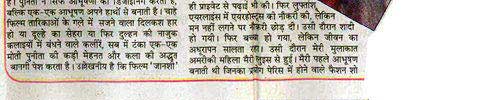 है। पुनीता न सिर्फ आभूषणों को डिजाइन करती हैं,
बल्कि एक-एक आभूषण अपने हाथों से बनाती हैं। चाहे
फिल्म तारिकाओं के गले में सजने वाला दिलकश हार
हो या दुल्हे का सेहरा या फिर दुल्हन की नाजुक
कलाइयों में बंधने वाले कलीरे, सब में टंका एक-एक
मोती पुनीता की कड़ी मेहनत और कला की अद्भुत
बानगी पेश करता है। उल्लेखनीय है कि फिल्म 'जानशीं'
ही प्राइवेट से पढ़ाई भी की। फिर लुफ्तांश
एयरलाइंस में एयरहोस्टेस की नौकरी की, लेकिन
मन नहीं लगने पर नौकरी छोड़ दी। उसी दौरान शादी
हो गयी। फिर बच्चे हो गया, लेकिन जीवन का
अधूरापन सालता रहा। उसी दौरान मेरी मुलाकात
अमरीकी महिला मैरी लुइस से हुई। मैरी पहले आभूषण
बनाती थी जिनका प्रयोग पेरिस में होने वाले फैशन शो